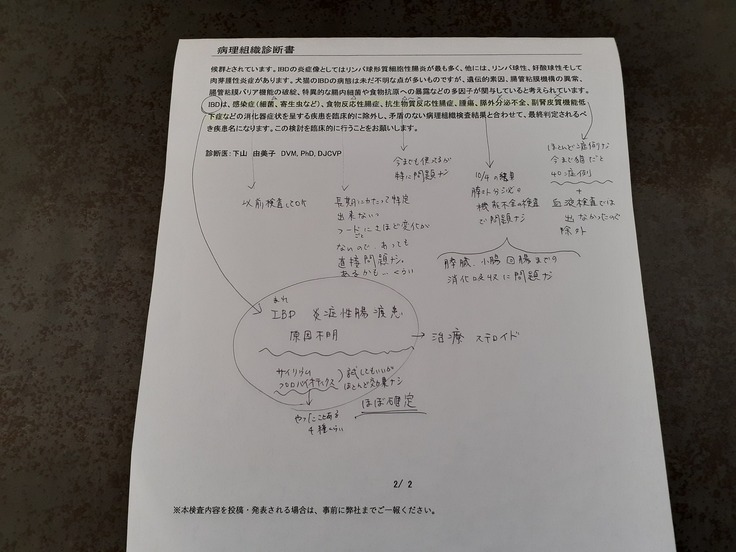 病理組織診断書
候群とされています。IBDの炎症像としてはリンパ球形質細胞性腸炎が最も多く、他には、リンパ球性、好酸球性そして
肉芽腫性炎症があります。犬猫のIBDの病態は未だ不明な点が多いものですが、遺伝的素因、腸管粘膜機構の異常、
腸管粘膜バリア機能の破綻、特異的な腸内細菌や食物抗原への暴露などの多因子が関与していると考えられています。
IBDは、感染症(細菌、寄生虫など)、食物反応性腸症、抗生物質反応性腸症、腫瘍、膵外分泌不全、副腎皮質機能低
下症などの消化器症状を呈する疾患を臨床的に除外し、矛盾のない病理組織検査結果と合わせて、最終判定されるべ
き疾患名になります。この検討を臨床的に行うことをお願いします。
診断医:下山 由美子 DVM, PhD, DJCVP
以前検査してOK
長期にわたって特定
出来ない
フードごとにさほど変化が
ないので、あっても
直接問題ナシ。
あるかも…くらい
今までも使ってるが
特に問題ナシ
10/4の結果
膵外分泌の
機能不全の検査
で問題ナシ
ほとんど症例ナシ
今まで猫だと
40症例
+
血液検査では
出なかったので
除外
膵臓、小腸、回腸までの
消化吸収に問題ナシ
IBD 炎症性腸疾患
原因不明
→ 治療 ステロイド
サイリウム
プロバイオティクス
試してもいいが
ほとんど効果ナシ
やったことある
4種くらい
ほぼ確定
2/ 2
※本検査内容を投稿・発表される場合は、事前に弊社までご一報ください。